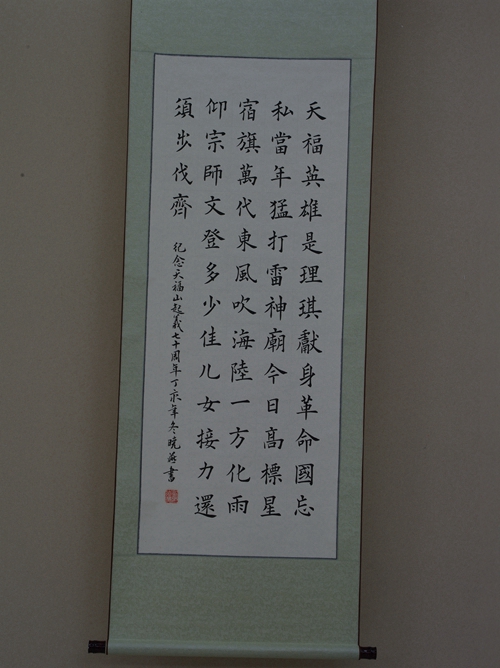 天福英雄是理琪獻身革命國忘
私當年猛打雷神廟今日高標星
宿旗萬代東風吹海陸一方化雨
仰宗師文登多少佳儿女接力還
須步伐齊
紀念天福山起義七十周年丁亥年冬曉書